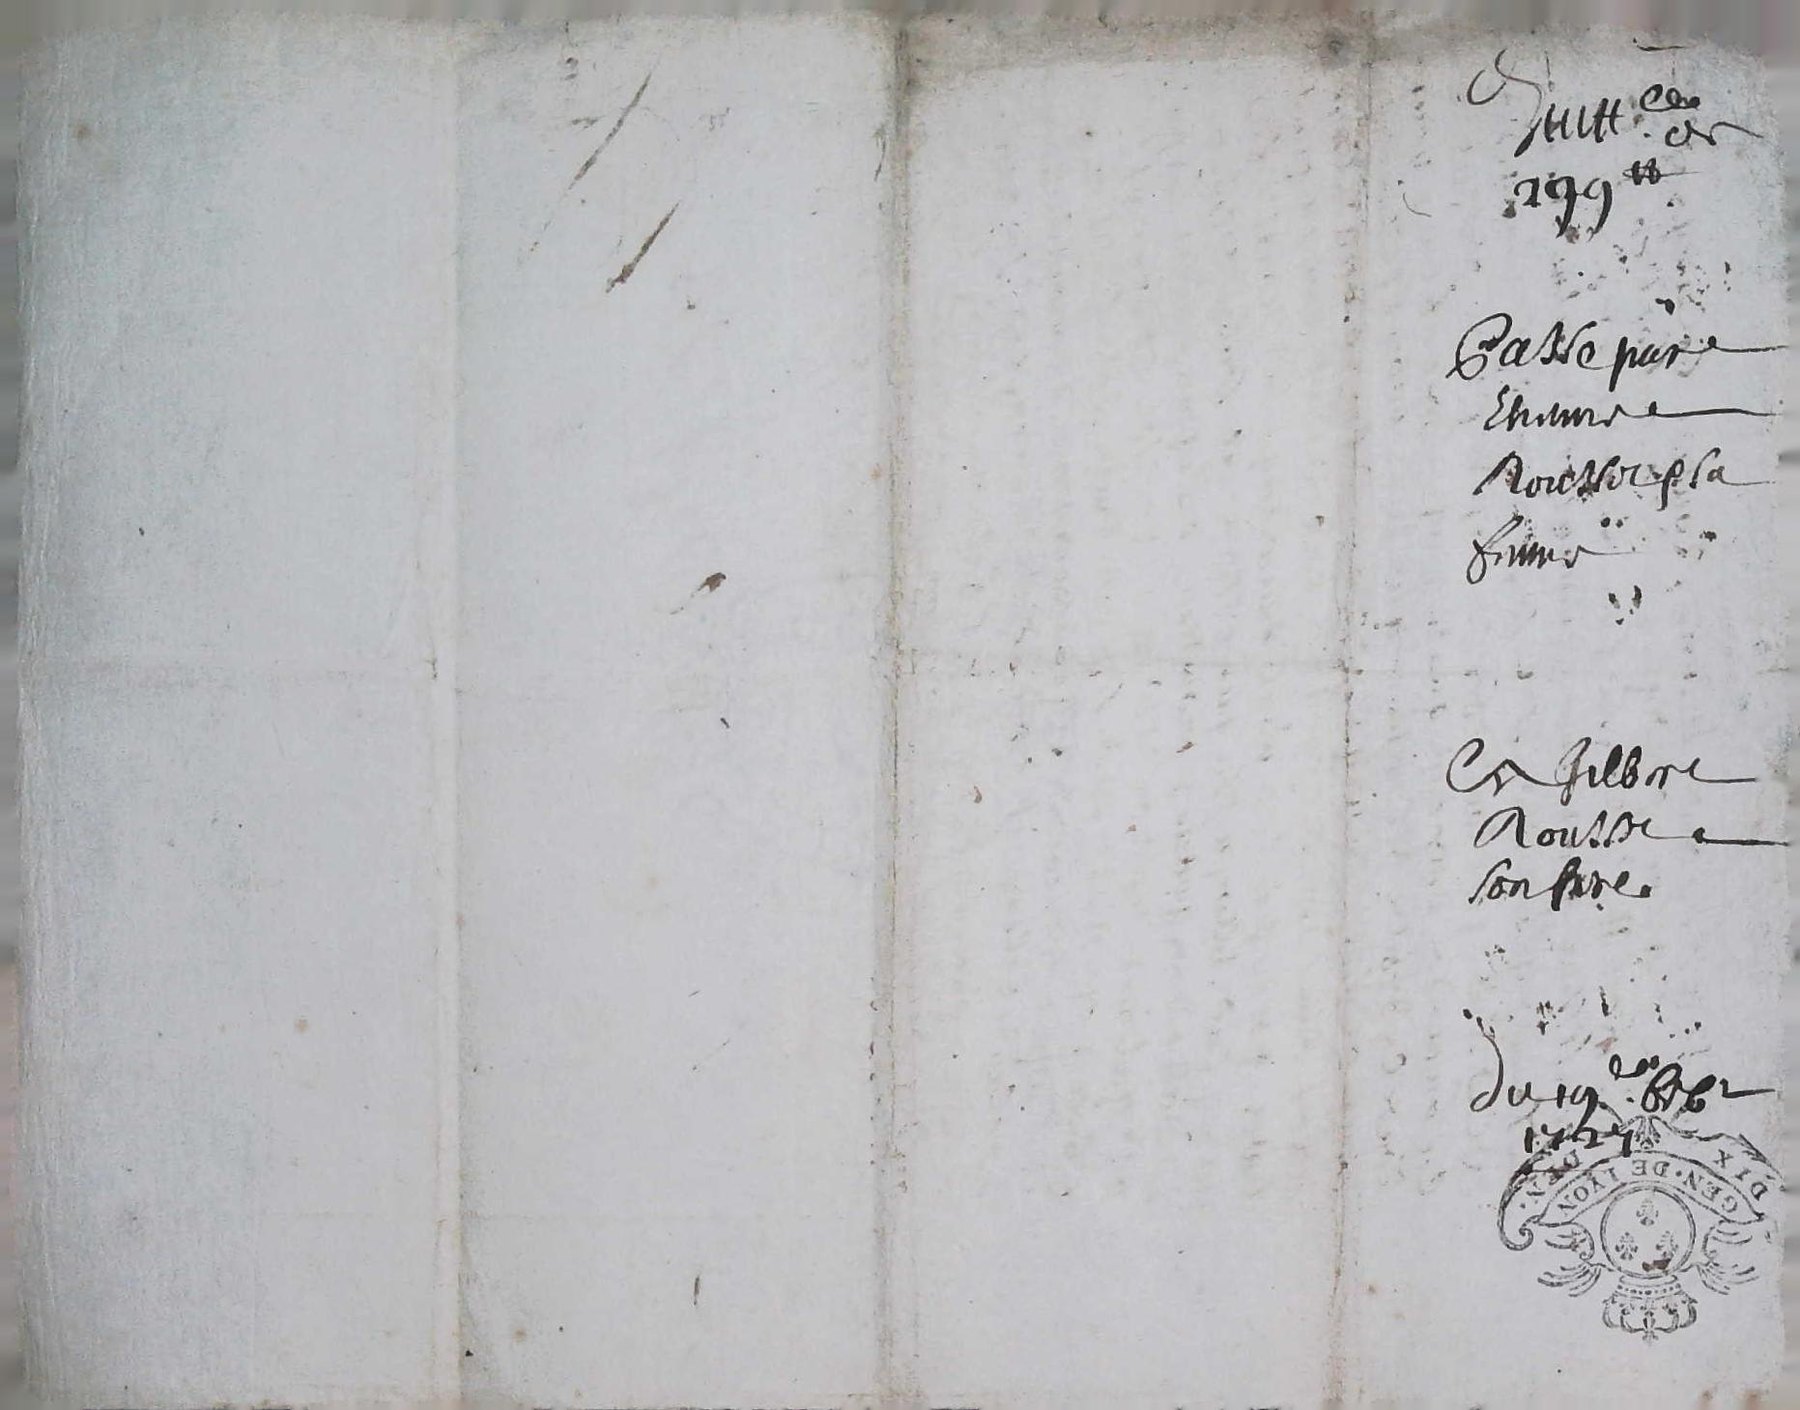 Quitt ce
de
299 tt
Passe par
Etienne
Rousse & sa
femme
Et Jilbert
Rousse
son frere
du 19 xbre
1727
DIX DEN.
GEN. DE LYON